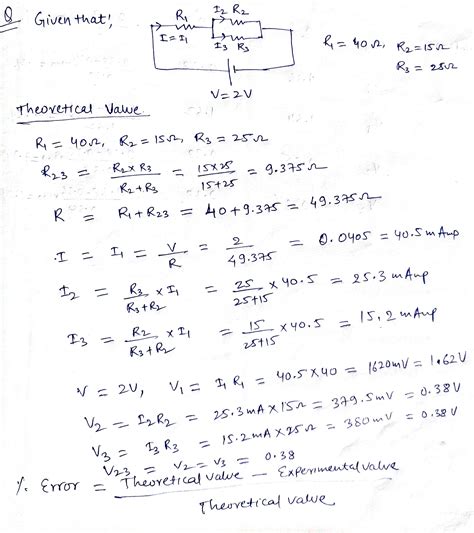 Q Given that!,
R₁ I₂ R₂
I = I₁ I₃ R₃
V = 2V
R₁ = 40Ω, R₂ = 15Ω
R₃ = 25Ω
Theoretical Value
R₁ = 40Ω, R₂ = 15Ω, R₃ = 25Ω
R₂₃ = R₂ × R₃ / R₂ + R₃ = 15×25 / 15+25 = 9.375Ω
R = R₁ + R₂₃ = 40 + 9.375 = 49.375Ω
I = I₁ = V / R = 2 / 49.375 = 0.0405 = 40.5 mAmp
I₂ = R₃ / R₃+R₂ × I₁ = 25 / 25+15 × 40.5 = 25.3 mAmp
I₃ = R₂ / R₃+R₂ × I₁ = 15 / 25+15 × 40.5 = 15.2 mAmp
V = 2V, V₁ = I₁ R₁ = 40.5 × 40 = 1620mV = 1.62V
V₂ = I₂R₂ = 25.3mA × 15Ω = 379.5mV = 0.38V
V₃ = I₃ R₃ = 15.2mA × 25Ω = 380mV = 0.38V
V₂₃ = V₂ = V₃ = 0.38
% Error = Theoretical value - Experimental value / Theoretical value